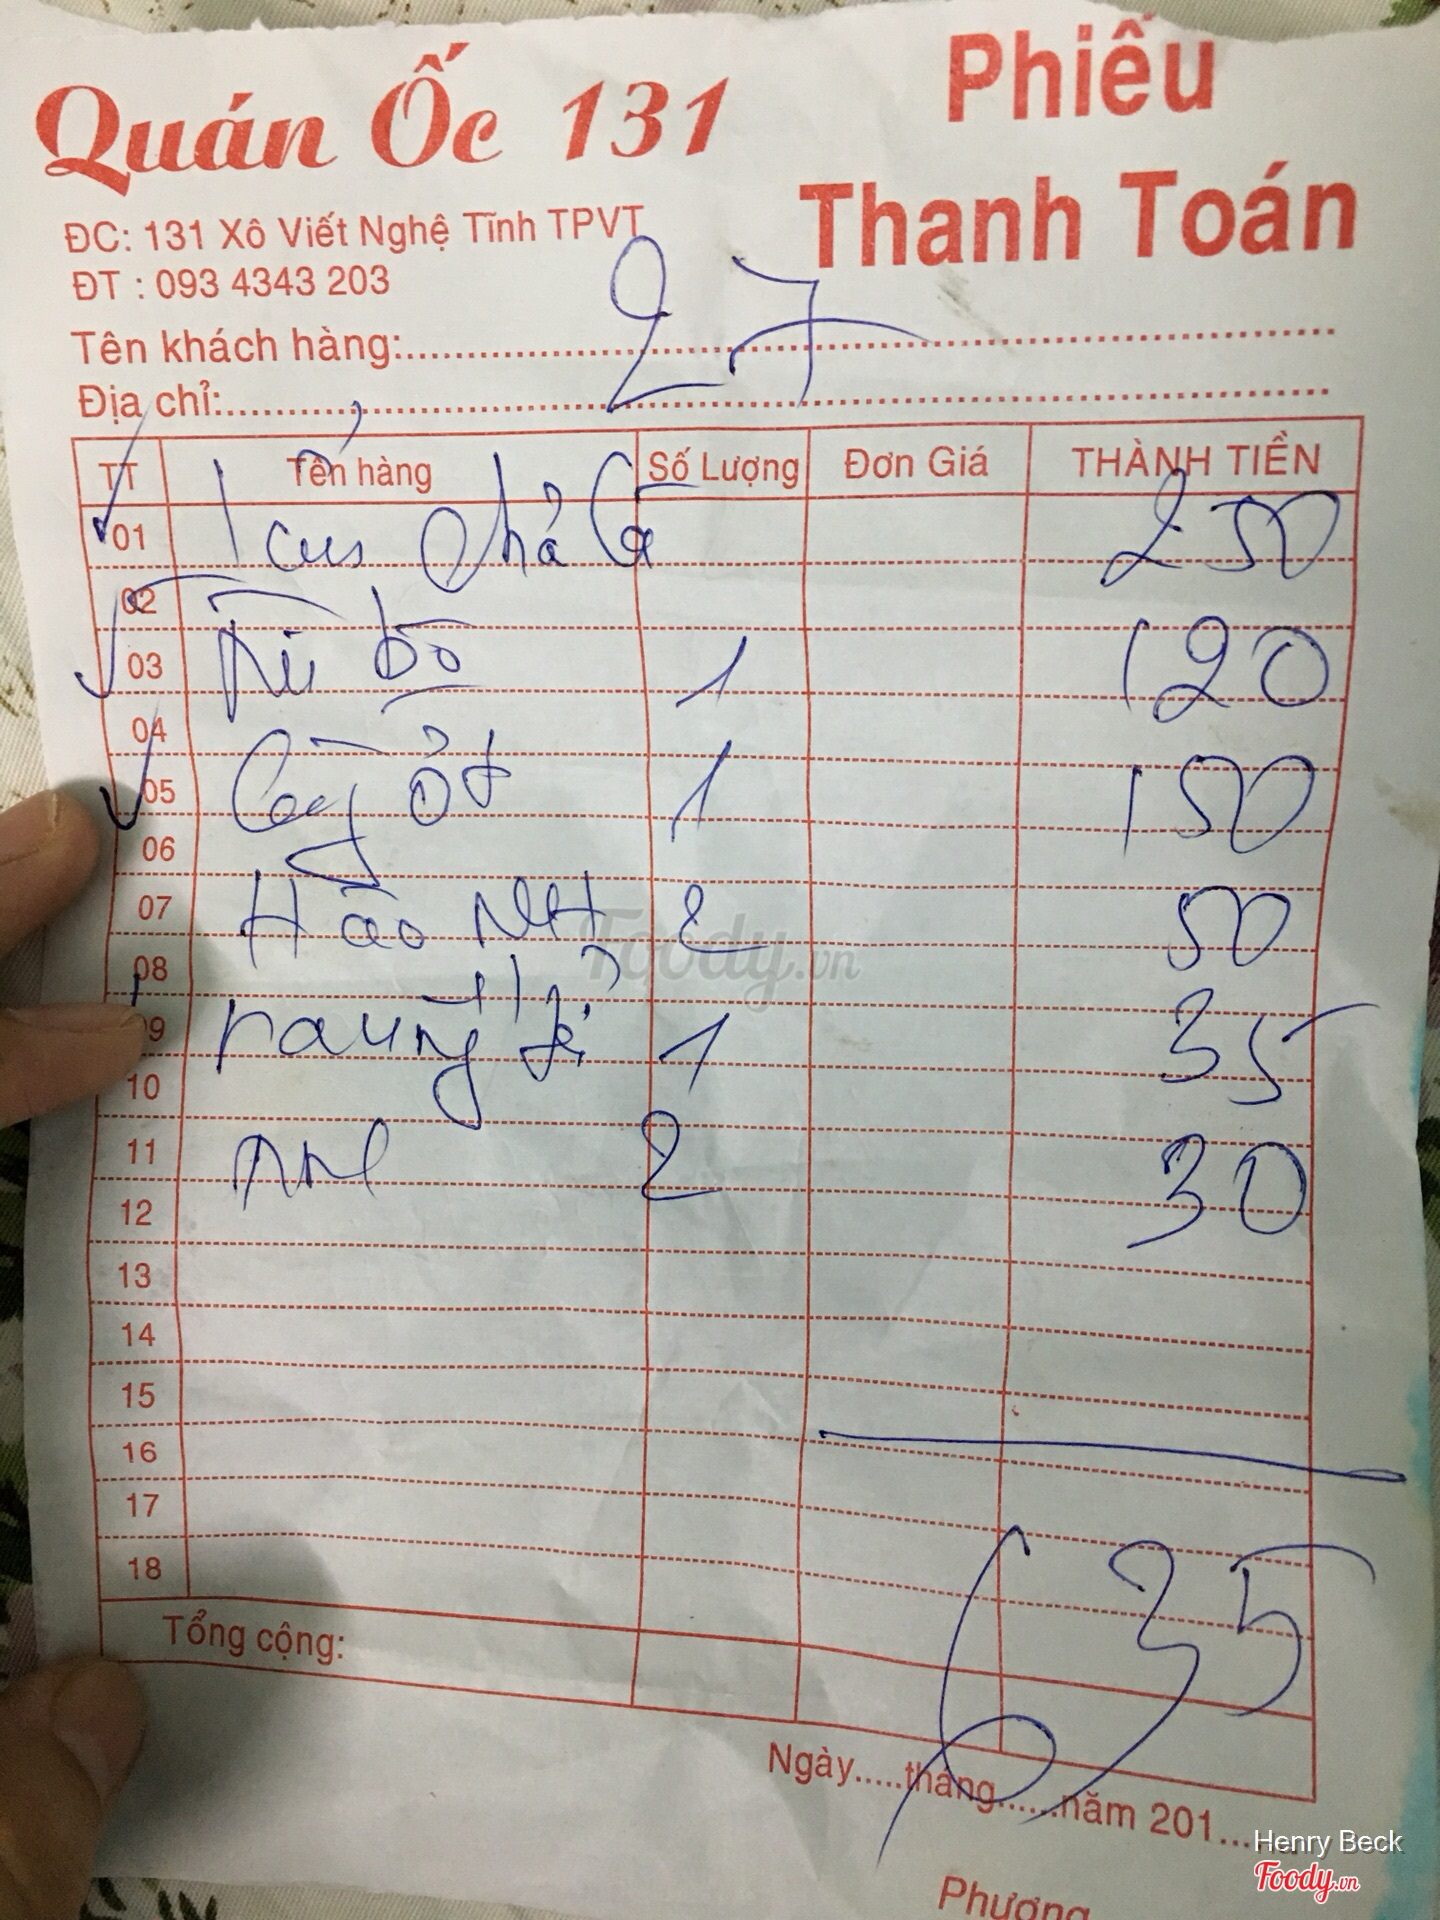 Quán Ốc 131
Phiếu
Thanh Toán
ĐC: 131 Xô Viết Nghệ Tĩnh TPVT
ĐT : 093 4343 203
27
Tên khách hàng:
Địa chỉ:
TT Tên hàng Số Lượng Đơn Giá THÀNH TIỀN
01 1 250
02
03 bò 1 120
04
05 ớt 1 150
06
07 Hào NH 2 50
08
09 raung 1 35
10
11 2 30
12
13
14
15
16
17
18
635
Tổng cộng:
Ngày.....tháng......năm 201...
Phương
Foody.vn
Henry Beck
Foody.vn